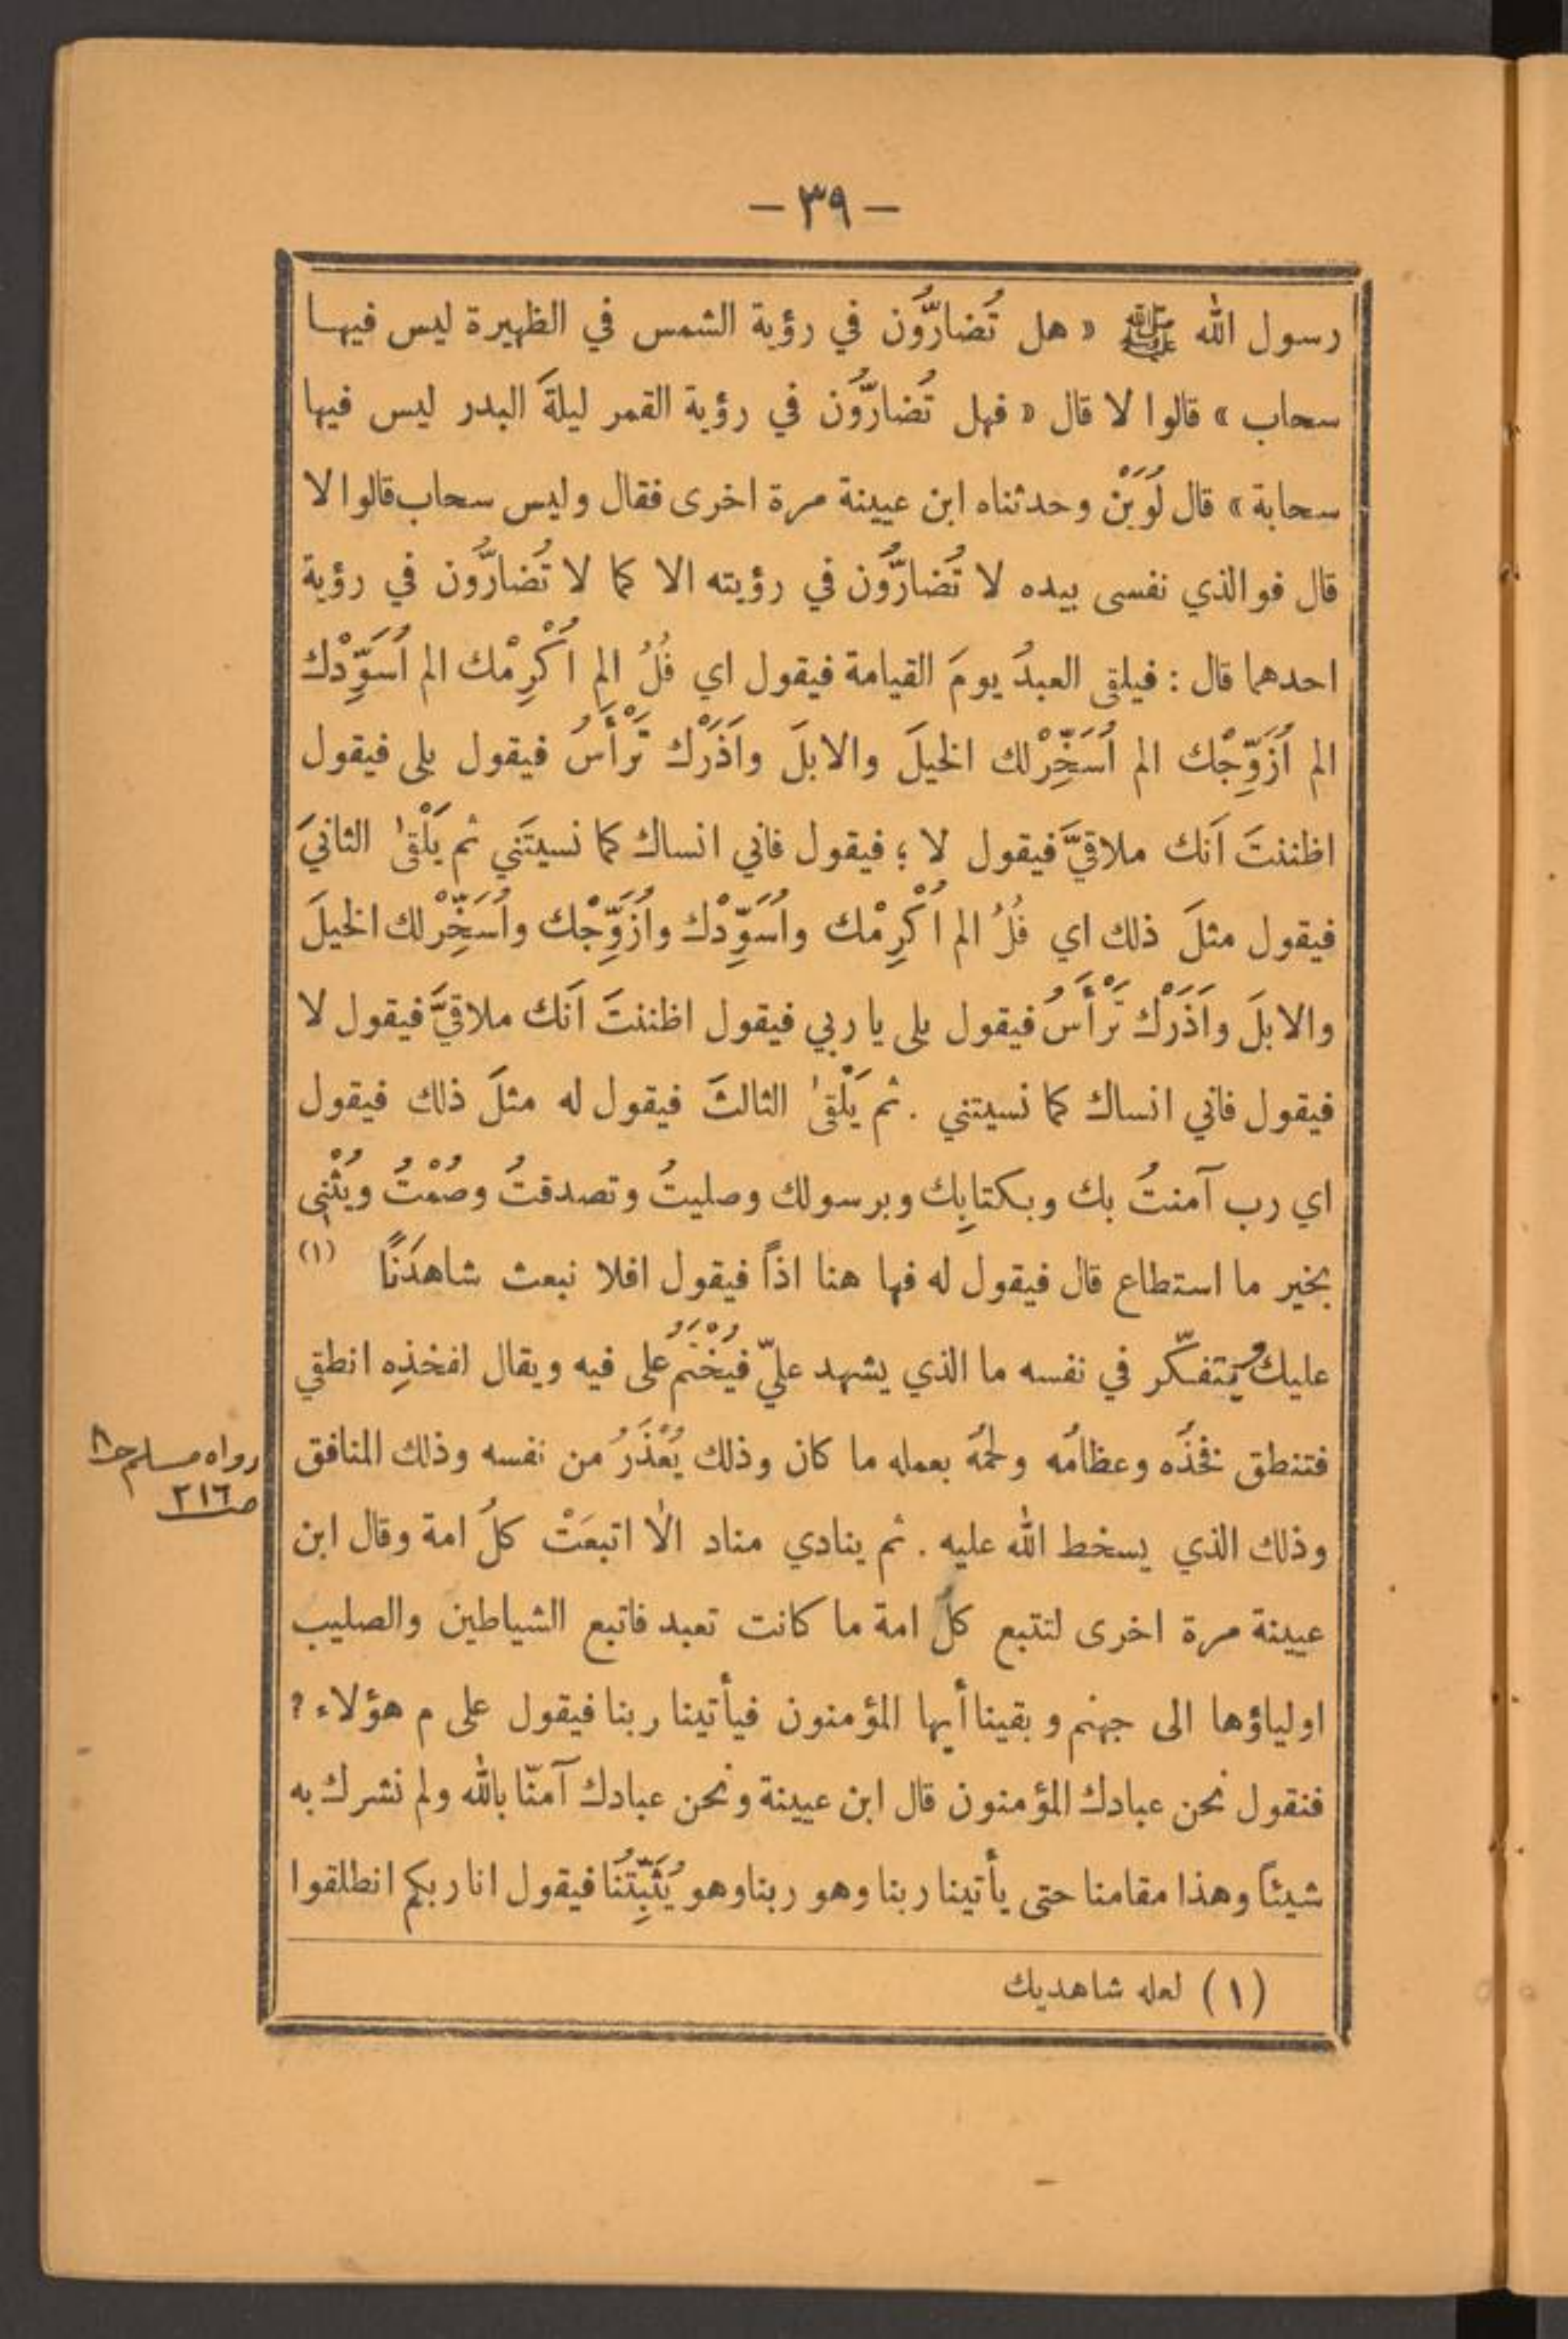 — ٣٩ —
رسول الله ﷺ « هل تُضارُّون في رؤية الشمس في الظهيرة ليس فيها
سحاب » قالوا لا قال « فهل تُضارُّون في رؤية القمر ليلةَ البدر ليس فيها
سحابة » قال لُوَيْن وحدثناه ابن عيينة مرة اخرى فقال وليس سحاب قالوا لا
قال فوالذي نفسى بيده لا تُضارُّون في رؤيته الا كما لا تُضارُّون في رؤية
احدهما قال : فيلقى العبدُ يومَ القيامة فيقول اي فُلُ الم اُكْرِمْك الم اُسَوِّدْك
الم اُزَوِّجْك الم اُسَخِّرْ لك الخيلَ والابلَ واَذَرْك تَرْأَسُ فيقول بلى فيقول
اظننتَ اَنك ملاقيَّ فيقول لا ؛ فيقول فاني انساك كما نسيتَني ثم يَلْقىٰ الثانيَ
فيقول مثلَ ذلك اي فُلُ الم اُكْرِمْك واُسَوِّدْك واُزَوِّجْك واُسَخِّرْ لك الخيلَ
والابلَ واَذَرْك تَرْأَسُ فيقول بلى يا ربي فيقول اظننتَ اَنك ملاقيَّ فيقول لا
فيقول فاني انساك كما نسيتني . ثم يَلْقىٰ الثالثَ فيقول له مثلَ ذلك فيقول
اي رب آمنتُ بك وبكتابِك وبرسولك وصليتُ وتصدقتُ وصُمْتُ ويُثْنِى
بخير ما استطاع قال فيقول له فها هنا اذاً فيقول افلا نبعث شاهدَنًا (١)
عليك ويتفكّر في نفسه ما الذي يشهد عليّ فيُخْتَمُ على فيه ويقال لفخذِه انطقي
فتنطق فخذُه وعظامُه ولحمُه بعمله ما كان وذلك يُعْذَرُ من نفسه وذلك المنافق
رواه مسلم ح٨
ص٢١٦
وذلك الذي يسخط الله عليه . ثم ينادي مناد الا اتبعَتْ كلُ امة وقال ابن
عيينة مرة اخرى لتتبع كلُ امة ما كانت تعبد فاتبع الشياطين والصليب
اولياؤها الى جهنم وبقينا أيها المؤمنون فيأتينا ربنا فيقول على م هؤلاء ؟
فنقول نحن عبادك المؤمنون قال ابن عيينة ونحن عبادك آمنّا بالله ولم نشرك به
شيئاً وهذا مقامنا حتى يأتينا ربنا وهو ربنا وهو يُثَبِّتُنا فيقول انا ربكم انطلقوا
(١) لعله شاهديك